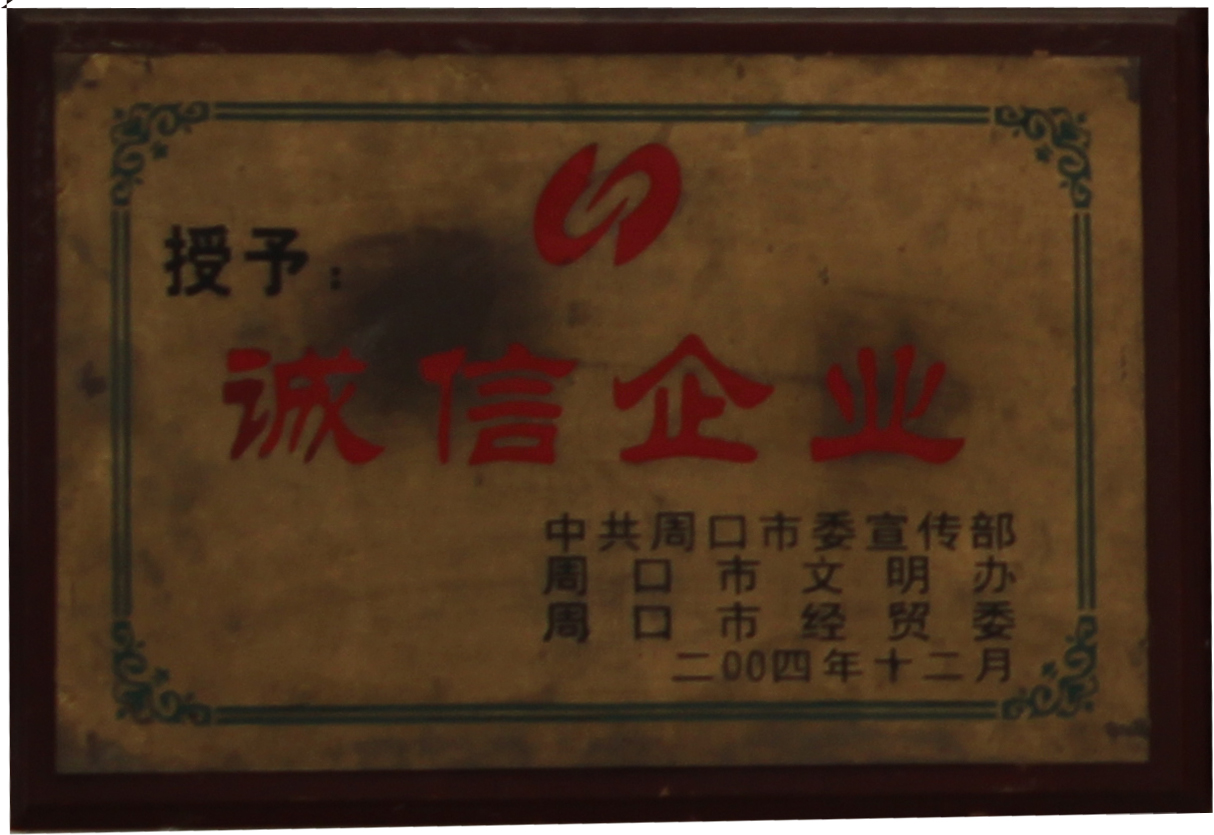 授予：
诚信企业
中共周口市委宣传部
周口市文明办
周口市经贸委
二00四年十二月